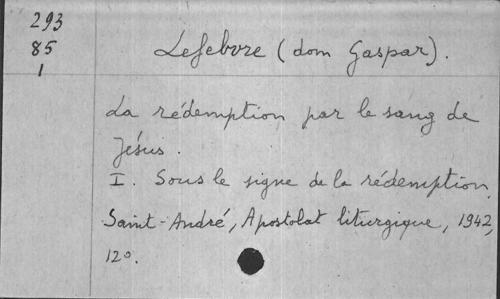 293
85
1
Lefebvre (dom Gaspar).
La rédemption par le sang de
Jésus.
I. Sous le signe de la rédemption.
Saint-André, Apostolat liturgique, 1942,
12º.